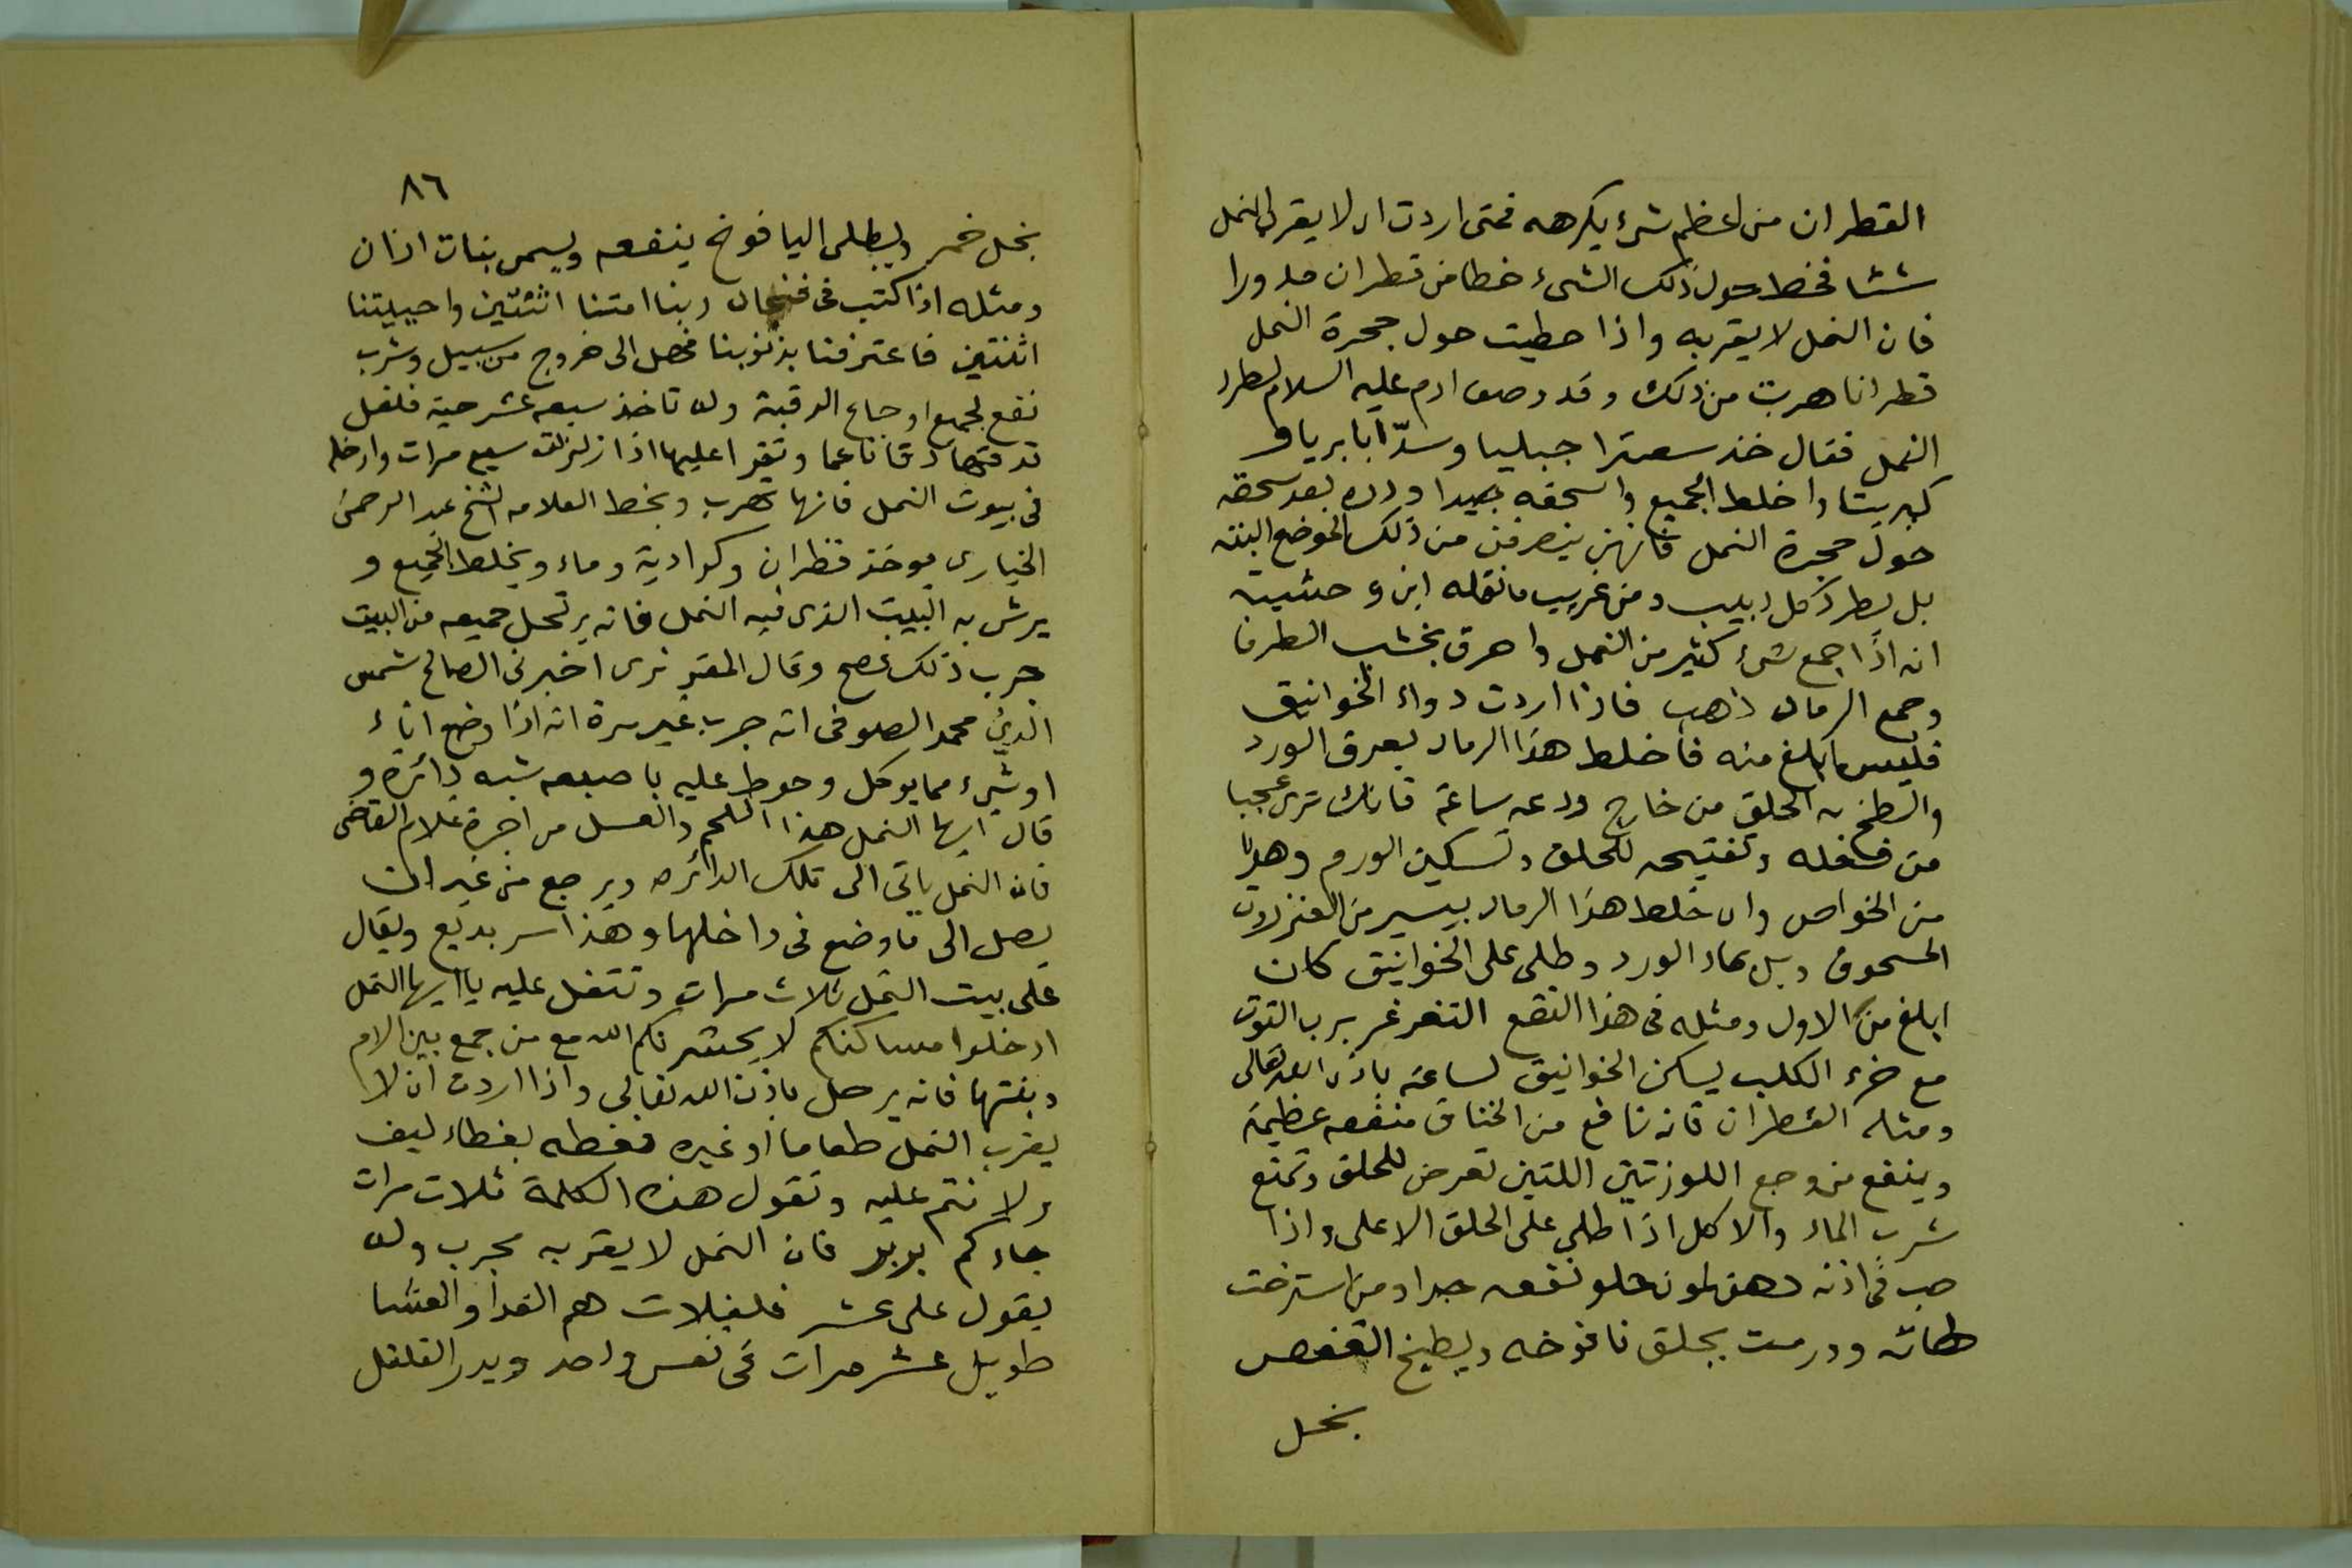 القطران من اعظم شىء يكرهه فمتى اردت ان لا يقرب النمل
شئا فخط حول ذلك الشىء خطا من قطران مدورا
فان النمل لا يقربه واذا حطيت حول جحرة النمل
قطرانا هربت من ذلك وقد وصف ادم عليه السلام لطرد
النمل فقال خذ سعترا جبليا وسدّابا بريا و
كبريتا واخلط الجميع واسحقه جيدا وذره بعد سحقه
حول حجرة النمل فانهن ينصرفن من ذلك الموضع البته
بل يطرد كل دبيب ومن غريب ما نقله ابن وحشية
انه اذا جمع شىء كثير من النمل واحرق بخشب الطرفا
وجمع الرماد ذهب فاذا اردت دواء الخوانيق
فليس ابلغ منه فاخلط هذا الرماد بعرق الورد
والطخ به الحلق من خارج ودعه ساعة فانك ترى عجبا
من فعله وتفتيحه للحلق وتسكين الورم وهذا
من الخواص وان خلط هذا الرماد بيسير من العنزروت
المسحوق وبل بماء الورد وطلى على الخوانيق كان
ابلغ من الاول ومثله فى هذا النفع التغرغر برب التوت
مع خرء الكلب يسكن الخوانيق لساعته باذن الله تعالى
ومثله القطران فانه نافع من الخناق منفعه عظيمة
وينفع من وجع اللوزتين اللتين تعرض للحلق وتمنع
شرب الماء والاكل اذا طلى على الحلق الاعلى واذا
صب فى اذنه دهن لوز حلو نفعه جدا ومن استرخت
لهاته وورمت يحلق نافوخه ويطبخ العفص
بخل
٨٦
بخل خمر ويطلى اليافوخ ينفعه ويسمى بنات اذان
ومثله اذا كتب فى فنجان ربنا امتنا اثنتين واحييتنا
اثنتين فاعترفنا بذنوبنا فهل الى خروج من سبيل وشرب
نفع لجميع اوجاع الرقبة وله تاخذ سبعه عشر حبة فلفل
تدقها دقا ناعما وتقرا عليها اذا زلزلت سبع مرات وادخله
فى بيوت النمل فانها تهرب وبخط العلامه الشيخ عبد الرحمن
الخيارى يوخذ قطران وكراوية وماء ويخلط الجميع و
يرش به البيت الذى فيه النمل فانه يرتحل جميعه من البيت
جرب ذلك فصح وقال المقريزى اخبرنى الصالح شمس
الدين محمد الصوفى انه جرب غير مرة انه اذا وضع اناء
اوشىء مما يوكل وحوط عليه باصبعه شبه دائرة و
قال ايها النمل هذا اللحم والعسل من اجرة غلام القاضى
فان النمل ياتى الى تلك الدائره ويرجع من غير ان
يصل الى ما وضع فى داخلها وهذا سر بديع ويقال
على بيت النمل ثلاث مرات وتتفل عليه يا ايها النمل
ادخلوا مساكنكم لا يحشرنكم الله مع من جمع بين الام
وبنتها فانه يرحل باذن الله تعالى واذا اردت ان لا
يقرب النمل طعاما او غيره فغطه بغطاء ليف
ولا تتم عليه وتقول هذه الكلمة ثلاث مرات
جاءكم بربر فان النمل لا يقربه مجرب وله
يقول على عشر فليفلات هم الغدا والعشا
طويل عشر مرات فى نفس واحد ويدر الفلفل